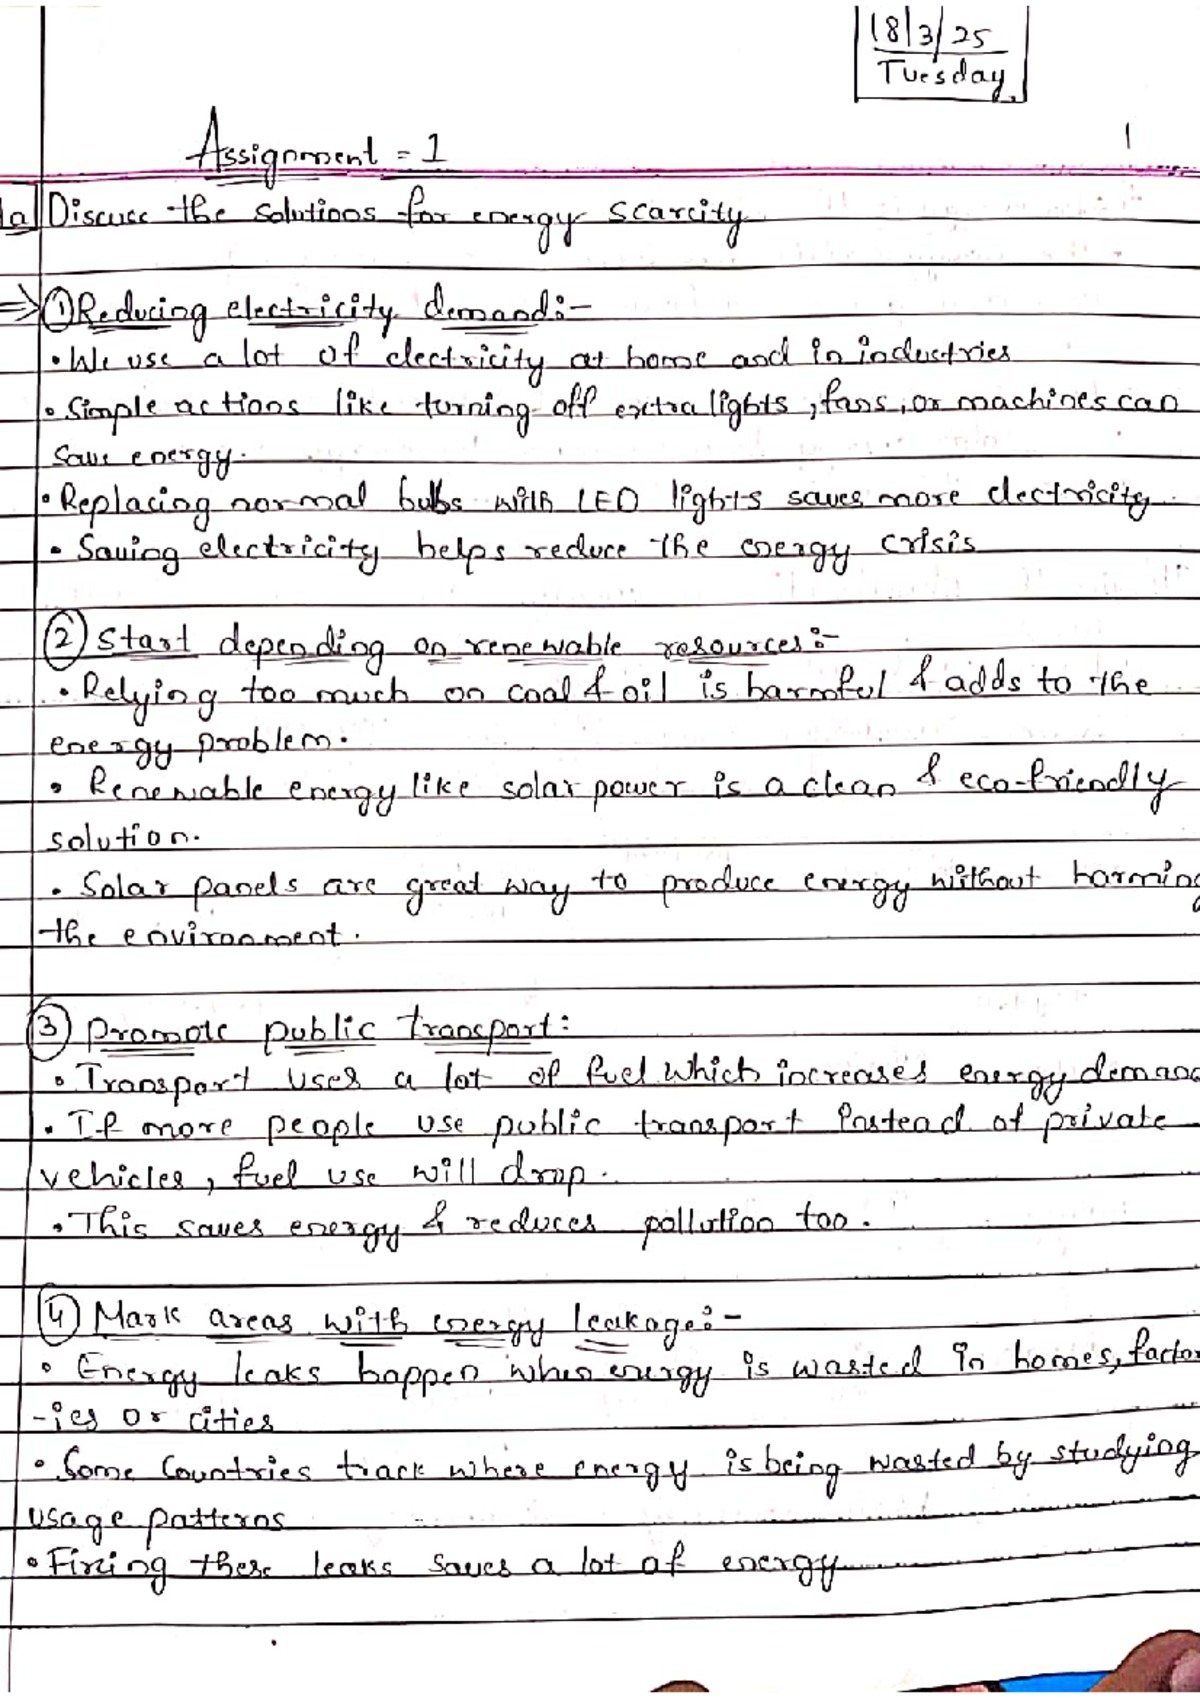 18/3/25
Tuesday
Assignment = 1
1
1a Discuss the solutions for energy scarcity
⇒ ① Reducing electricity demand:-
• We use a lot of electricity at home and in industries
• Simple actions like turning off extra lights, fans, or machines can
save energy.
• Replacing normal bulbs with LED lights saves more electricity.
• Saving electricity helps reduce the energy crisis
② Start depending on renewable resources:-
• Relying too much on coal & oil is harmful & adds to the
energy problem.
• Renewable energy like solar power is a clean & eco-friendly
solution.
• Solar panels are great way to produce energy without harming
the environment.
③ Promote public transport:
• Transport uses a lot of fuel which increases energy demand
• If more people use public transport instead of private
vehicles, fuel use will drop.
• This saves energy & reduces pollution too.
④ Mark areas with energy leakage:-
• Energy leaks happen when energy is wasted in homes, factor
-ies or cities
• Some Countries track where energy is being wasted by studying
usage patterns
• Fixing these leaks saves a lot of energy